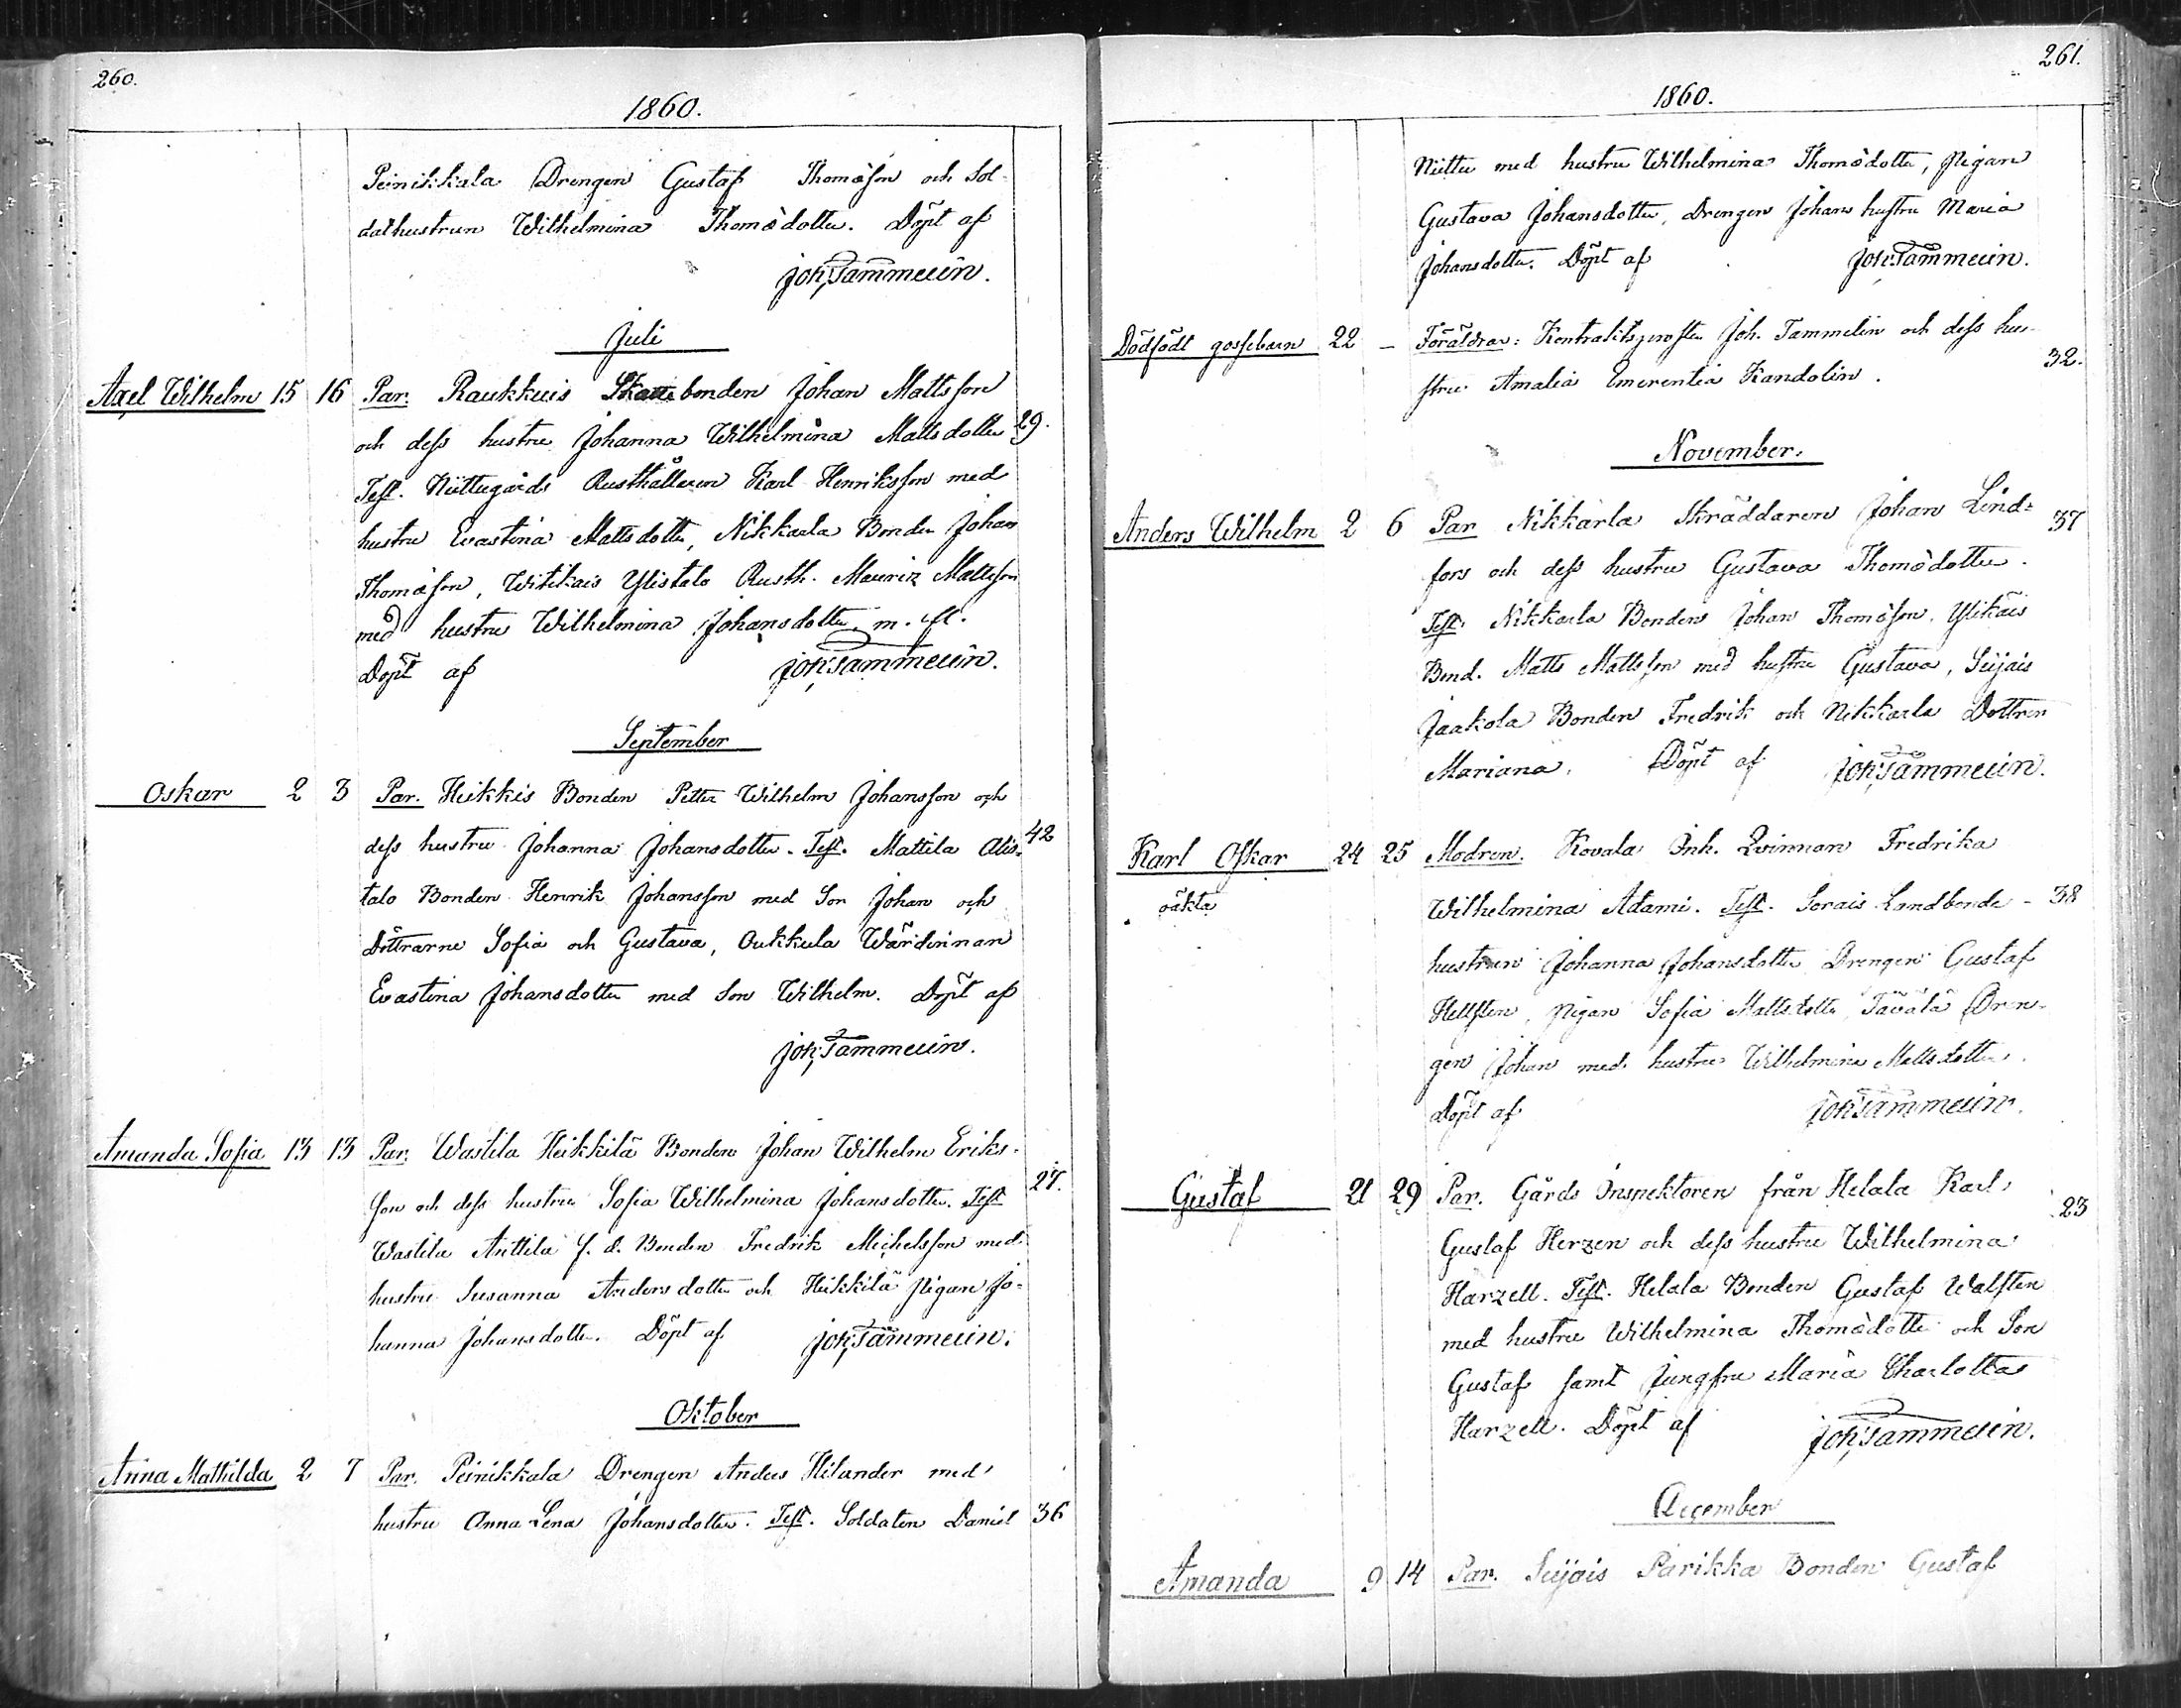 260.
1860.
Peinikkala Drengen Gustaf Thomasson och Sol-
dathustrun Wilhelmina Thomsdotter. Döpt af
Joh. Tammelin.
Juli
Axel Wilhelm 15 16 Par. Raukkuis Skattebonden Johan Mattsson
och dess hustru Johanna Wilhelmina Mattsdotter 29.
Test. Niittugårds Rusthållaren Karl Henriksson med
hustru Evastina Mattsdotter, Nikkarla Bonden Johan
Thomasson, Witikais Ylistalo Rusth. Mauritz Mattsson
med hustru Wilhelmina Johansdotter m. fl.
Döpt af Joh. Tammelin.
September
Oskar 2 3 Par. Heikkis Bonden Petter Wilhelm Johansson och
dess hustru Johanna Johansdotter. Test. Mattila Alis- 42
talo Bonden Henrik Johansson med Son Johan och
Döttrarne Sofia och Gustava, Oukkula Wärdinnan
Evastina Johansdotter med Son Wilhelm. Döpt af
Joh. Tammelin.
Amanda Sofia 13 13 Par. Wastila Heikkilä Bonden Johan Wilhelm Eriks-
son och dess hustru Sofia Wilhelmina Johansdotter. Test 27.
Wastila Anttila f. d. Bonden Fredrik Michelsson med
hustru Susanna Andersdotter och Heikkilä Pigan Jo-
hanna Johansdotter. Döpt af Joh. Tammelin.
Oktober
Anna Mathilda 2 7 Par. Peinikkala Drengen Anders Hilander med
hustru Anna Lena Johansdotter. Test. Soldaten Daniel 36
261.
1860.
Niittu med hustru Wilhelmina Thomsdotter, Pigan
Gustava Johansdotter, Drengen Johans hustru Maria
Johansdotter. Döpt af Joh. Tammelin.
Dödfödt gossebarn 22 – Föräldrar: Kontraktsprosten Joh. Tammelin och dess hu-
stru Amalia Emerentia Kandolin. 32.
November.
Anders Wilhelm 2 6 Par Nikkarla Skräddaren Johan Lind- 37
fors och dess hustru Gustava Thomsdotter.
Test. Nikkarla Bonden Johan Thomasson, Ylikäis
Bond. Matts Mattsson med hustru Gustava, Seijais
Jaakola Bonden Fredrik och Nikkarla Dottren
Mariana. Döpt af Joh. Tammelin.
Karl Oskar 24 25 Modren. Kovala Inh. Qvinnan Fredrika
oäkta
Wilhelmina Adami. Test. Sorais Landbonde- 38
hustrun Johanna Johansdotter Drengen Gustaf
Hellsten, Pigan Sofia Mattsdotter, Tävälä Dren-
gen Johan med hustru Wilhelmina Mattsdotter.
Döpt af Joh. Tammelin.
Gustaf 21 29 Par. Gårds Inspektoren från Helala Karl
Gustaf Herzen och dess hustru Wilhelmina 23
Harzell. Test. Helala Bonden Gustaf Walsten
med hustru Wilhelmina Thomsdotter och Son
Gustaf samt Jungfru Maria Charlotta
Harzell. Döpt af Joh. Tammelin.
December
Amanda 9 14 Par. Seijais Parikka Bonden Gustaf